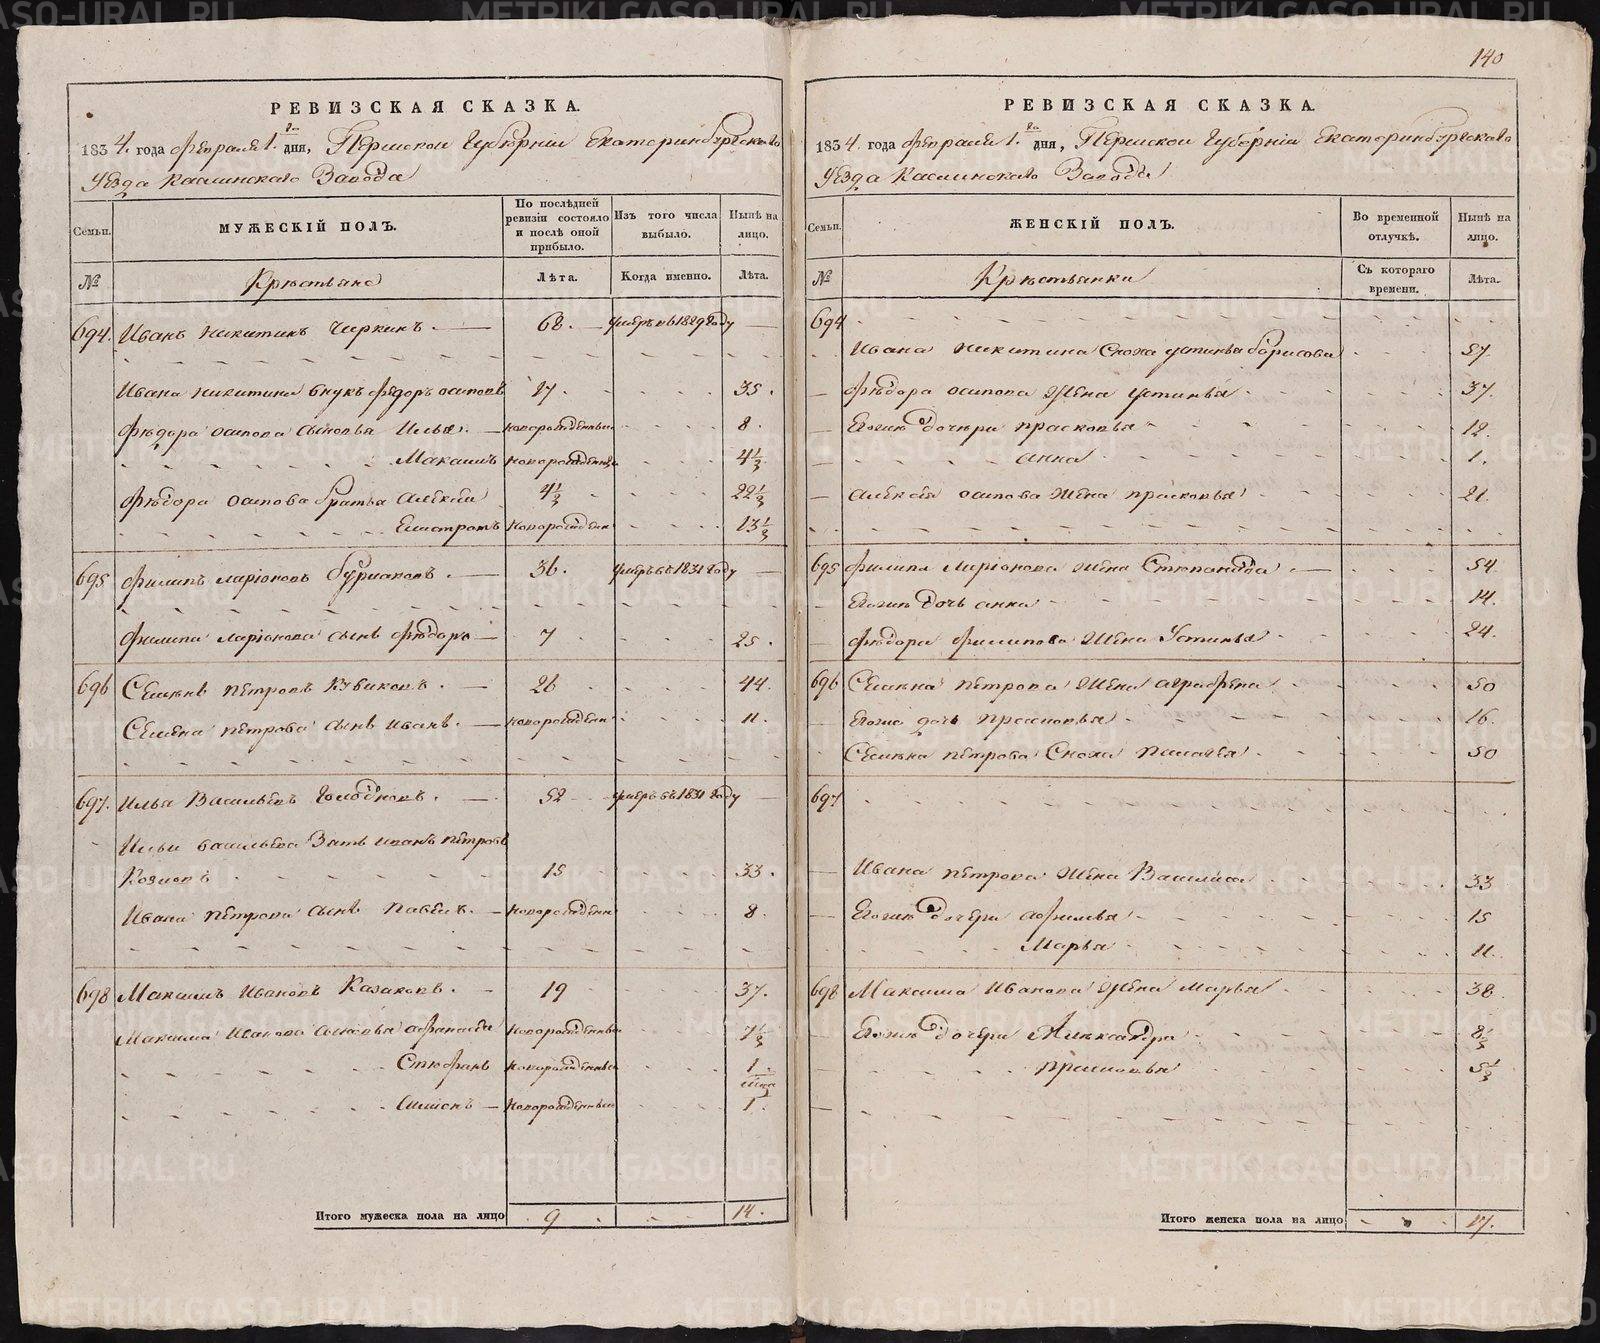 140
РЕВИЗСКАЯ СКАЗКА.
1834. года февраля 1. го дня, Пермской Губернии Екатеринбургскаго
Уезда Каслинскаго Завода
Семьи.
МУЖЕСКІЙ ПОЛЪ.
По послѣдней ревизіи состояло и послѣ оной прибыло.
Изъ того числа выбыло.
Нынѣ на лицо.
№
Крестьяне
Лѣта.
Когда именно.
Лѣта.
694. Иванъ Никитинъ Чиркинъ. 68. умеръ въ 1829 году
Ивана Никитина внукъ Федоръ Осиповъ 17 35.
Федора Осипова сыновья Илья. новорожденный 8.
Максимъ новорожденный 4½
Федора Осипова братья Алексей 4½ 22½
Емстратъ новорожден 13½
695 Филипъ Ларіоновъ Бурмаковъ. 36. умеръ въ 1831 году
Филипа Ларіонова сынъ Федоръ 7 25.
696 Семенъ Петровъ Кубиковъ. 26 44.
Семена Петрова сынъ Иванъ. новорожден 11.
697. Илья Васильевъ Голодновъ. 52 умеръ въ 1831 году
Ильи Васильева Зять Иванъ Петровъ
Козловъ 15 33.
Ивана Петрова сынъ Павелъ. новорожден 8.
698 Максимъ Ивановъ Казаковъ. 19 37.
Максима Иванова сыновья Афанасей новорожденный 7½
Стефанъ новорожденный 1
Симонъ новорожденный 1.
Итого мужеска пола на лицо 9 14.
РЕВИЗСКАЯ СКАЗКА.
1834. года февраля 1. го дня, Пермской Губерніи Екатеринбургскаго
Уезда Каслинскаго Завода
Семьи.
ЖЕНСКІЙ ПОЛЪ.
Во временной отлучкѣ.
Нынѣ на лицо.
№
Крестьянки
Съ котораго времени.
Лѣта.
694
Ивана Никитина Сноха Устинья Борисова 57.
Федора Осипова Жена Устинья 37.
Егоже дочери Прасковья 12.
Анна 1.
Алексея Осипова Жена Прасковья 21.
695 Филипа Ларіонова Жена Степанида 54
Егоже дочь Анна 14.
Федора Филипова Жена Устинья 24.
696 Семена Петрова Жена Аграфена 50
Егоже дочь Прасковья 16.
Семена Петрова Сноха Пелагея 50
697
Ивана Петрова Жена Василиса 33
Егоже дочери Афимья 15
Марья 11
698 Максима Иванова Жена Марья 38
Егоже дочери Александра 8½
Прасковья 5½
Итого женска пола на лицо 17.
METRIKI.GASO-URAL.RU